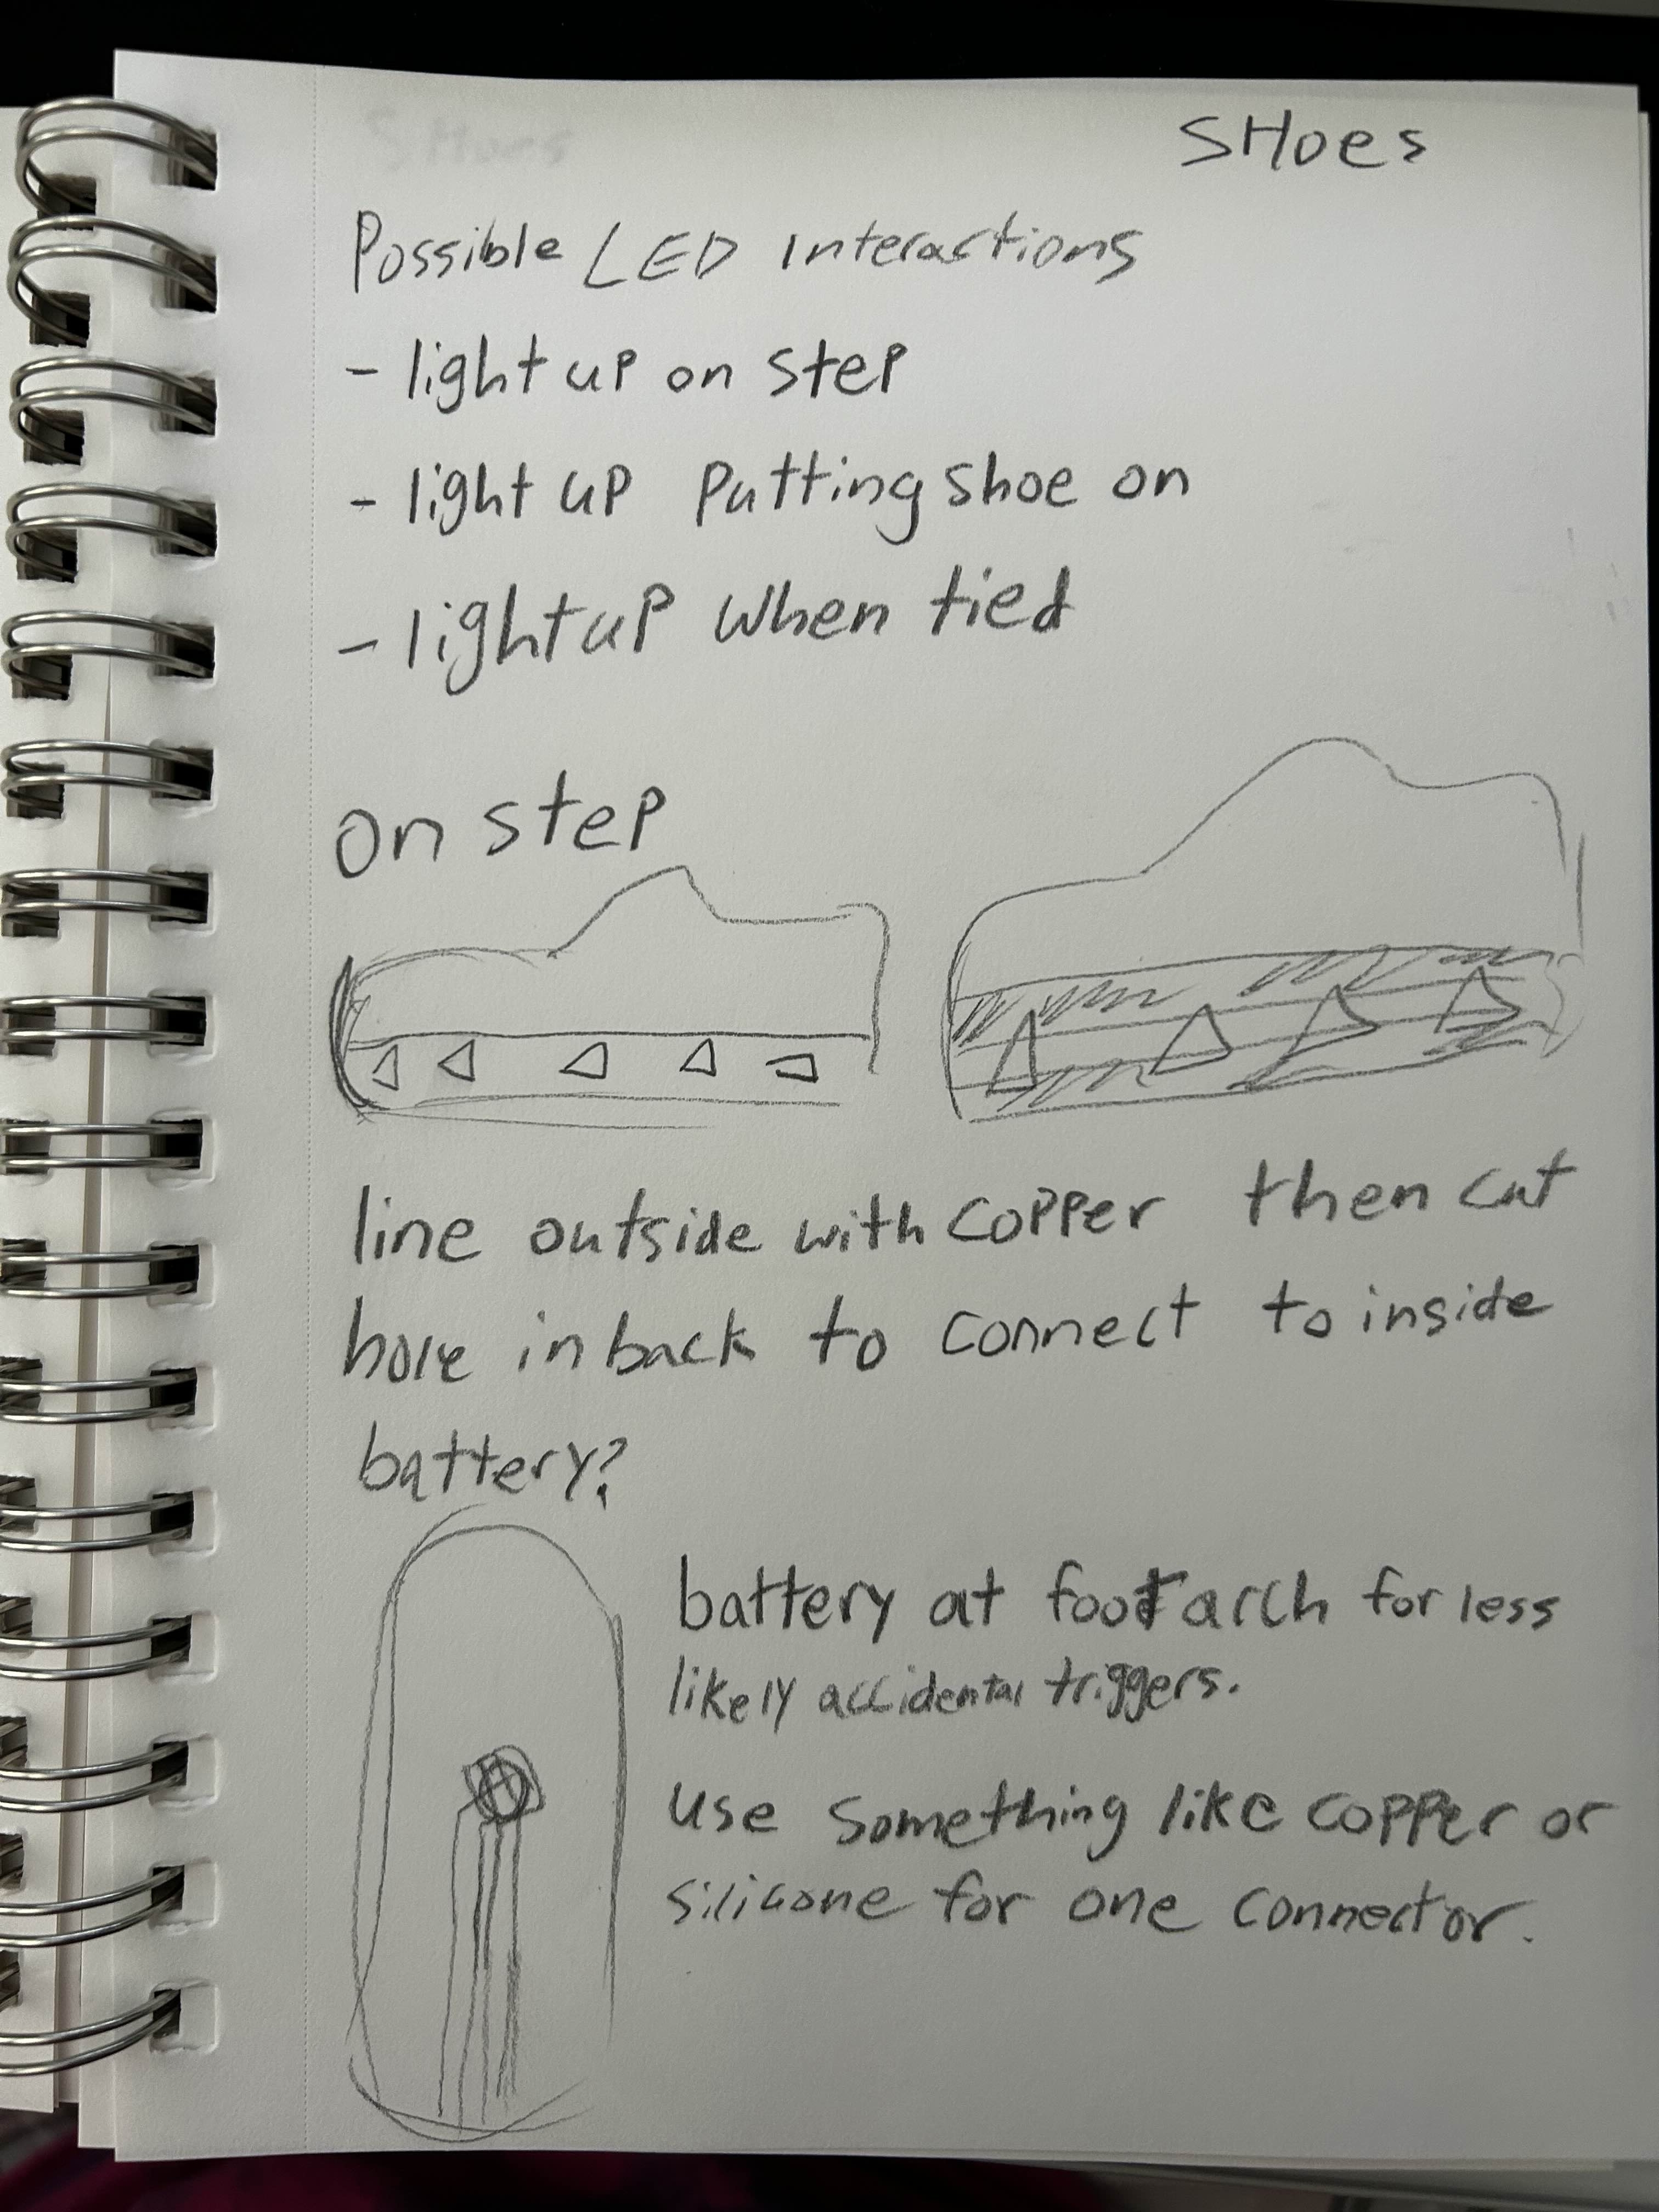 SHoes
SHoes
Possible LED Interactions
- light up on step
- light up putting shoe on
- light up when tied
on step
line outside with copper then cut
hole in back to connect to inside
battery?
battery at foot arch for less
likely accidental triggers.
use something like copper or
silicone for one connector.